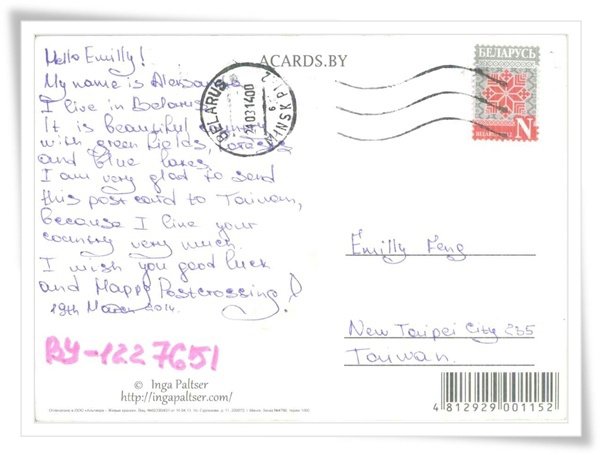 ACARDS.BY
Hello Emilly!
My name is
I live in Belarus
It is beautiful country
with green fields, forests
and blue lakes.
I am very glad to send
this post card to Taiwan,
because I like your
country very much.
I wish you good luck
and Happy Postcrossing!
19th March 2014.
BY-1227651
© Inga Paltser
http://ingapaltser.com/
BELARUS
MINSK PI 2
21031400
БЕЛАРУСЬ
N
Emilly Feng
New Taipei City 235
Taiwan.
4 812929 001152